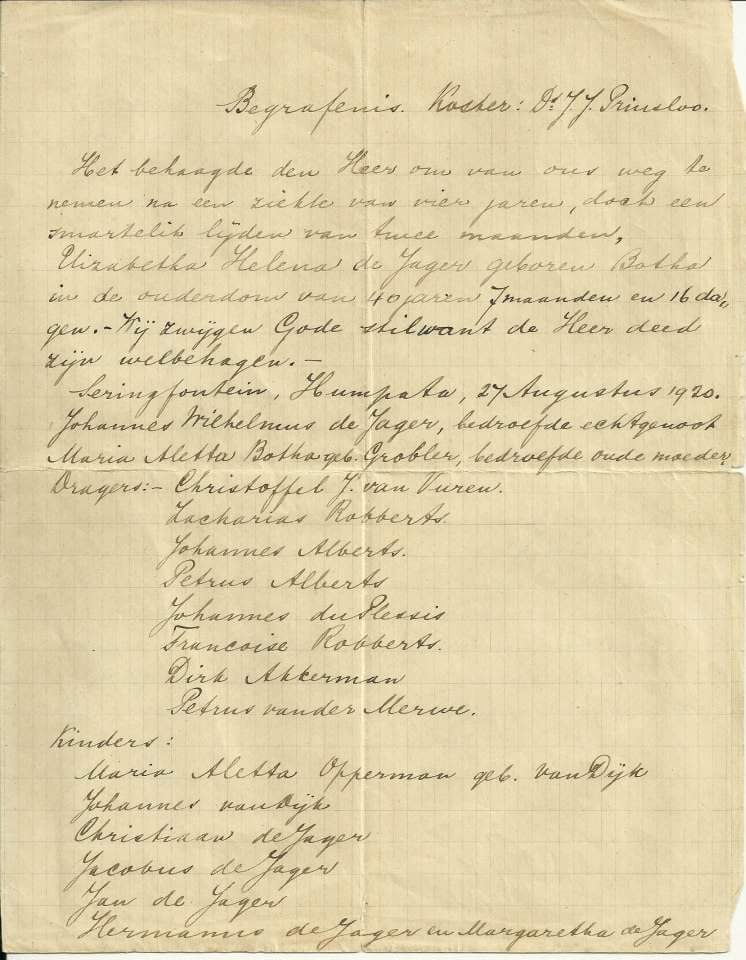 Begrafenis. Koster: Ds. J. J. Prinsloo.
Het behaagde den Heer om van ons weg te
nemen na een ziekte van vier jaren, doch een
smartelik lijden van twee maanden,
Elizabetha Helena de Jager geboren Botha
in de ouderdom van 40 jaren 7 maanden en 16 da„
gen. - Wij zwijgen Gode stil want de Heer deed
zijn welbehagen. -
Seringfontein, Humpata, 27 Augustus 1920.
Johannes Wilhelmus de Jager, bedroefde echtgenoot
Maria Aletta Botha geb. Grobler, bedroefde oude moeder,
Dragers: - Christoffel J. van Vuren.
Zacharias Robberts.
Johannes Alberts.
Petrus Alberts
Johannes du Plessis
Francoise Robberts.
Dirk Akkerman
Petrus van der Merwe.
Kinders:
Maria Aletta Opperman geb. van Dijk
Johannes van Dijk
Christiaan de Jager
Jacobus de Jager
Jan de Jager
Hermanus de Jager en Margaretha de Jager